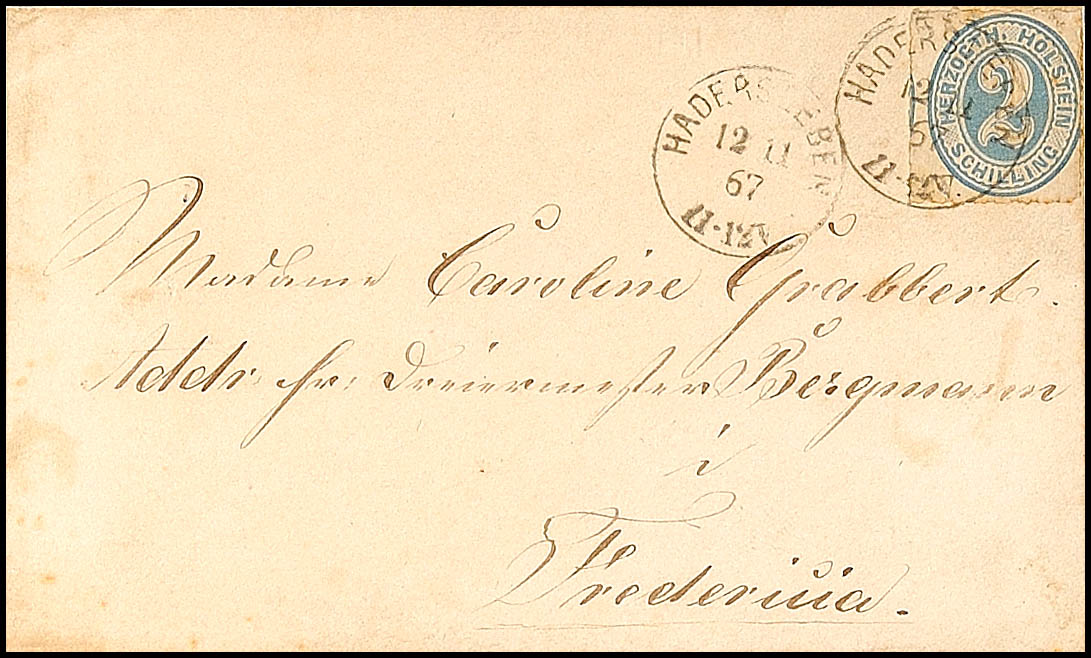 HERZOGTH. HOLSTEIN
2
SCHILLING
HADERSLEBEN
12 11
67
11-12V.
HADERSLEBEN
12 11
67
11-12V.
Madame Caroline Grabbert.
Addr. Hr: Dreiermester Bergmann
i
Fredericia.